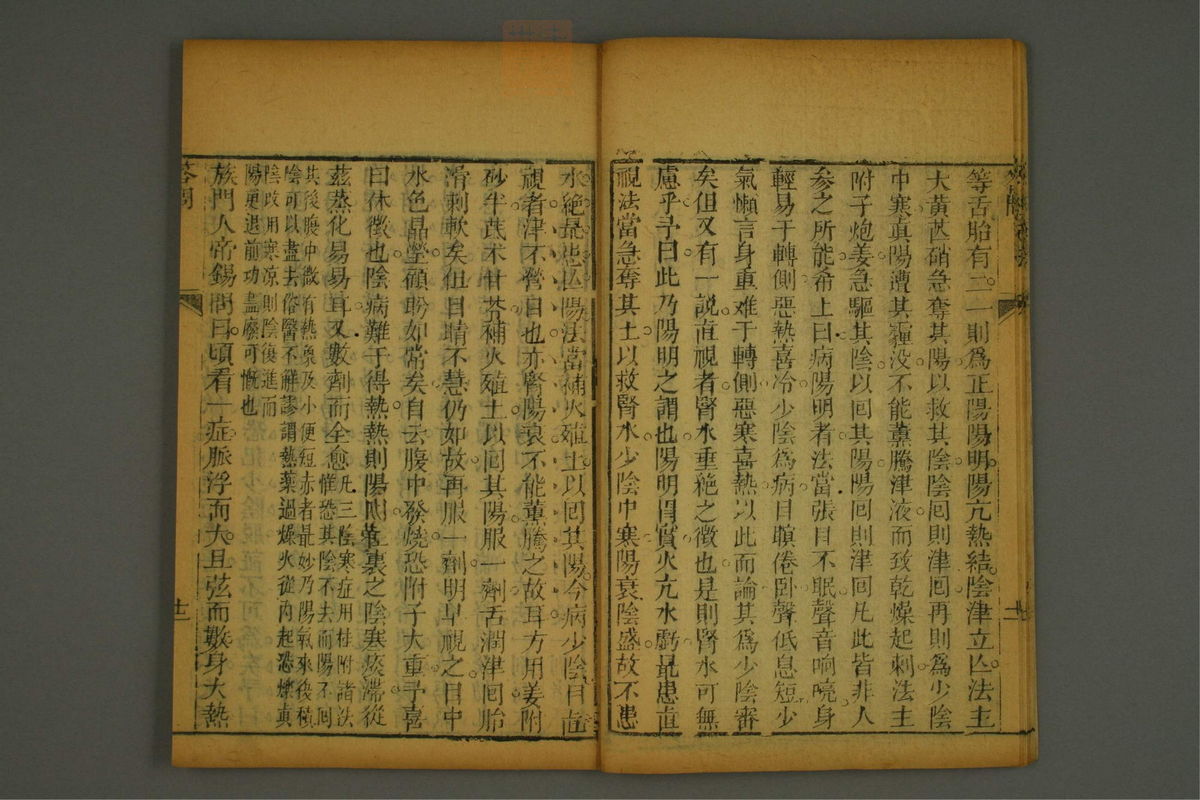 等舌胎有二一則爲正陽陽明陽亢熱結陰津立亾法主
大黃芒硝急奪其陽以救其陰陰囘則津囘再則爲少陰
中寒眞陽遭其霾没不能薰騰津液而致乾燥起刺法主
附子炮姜急驅其陰以囘其陽陽囘則津囘凡此皆非人
參之所能希上曰病陽明者法當張目不眠聲音响喨身
輕易于轉側惡熱喜冷少陰爲病目瞑倦卧聲低息短少
氣懶言身重难于轉側惡寒喜熱以此而論其爲少陰審
矣但又有一説直視者腎水垂絶之徵也是則腎水可無
慮乎予曰此乃陽明之謂也陽明胃實火亢水虧是患直
視法當急奪其土以救腎水少陰中寒陽衰陰盛故不患
水絶是患亾陽法當補火殖土以囘其陽今病少陰目直
視者津不營目也亦腎陽衰不能薰騰之故耳方用姜附
砂半芪术甘茶補火殖土以囘其陽服一劑舌潤津囘胎
滑刺軟矣但目睛不慧仍如故再服一劑明早視之目中
水色晶瑩顧盼如常矣自云腹中發燒恐附子太重予喜
曰休徵也陰病難于得熱熱則陽囘
裏之陰寒痰滯從
茲蒸化易易耳又數劑而全愈凡三陰寒症用桂附諸法
惟恐其陰不去而陽不囘
其後腹中微有熱臭及小便短赤者最妙乃陽氣來復積
陰可以盡去俗醫不解謬謂熱藥過燥火從内起恐爍眞
陰改用寒凉則陰復進而
陽更退前功盡廢可慨也
族門人帝錫問曰頃看一症脈浮而大且弦而數身大熱
答問
十二